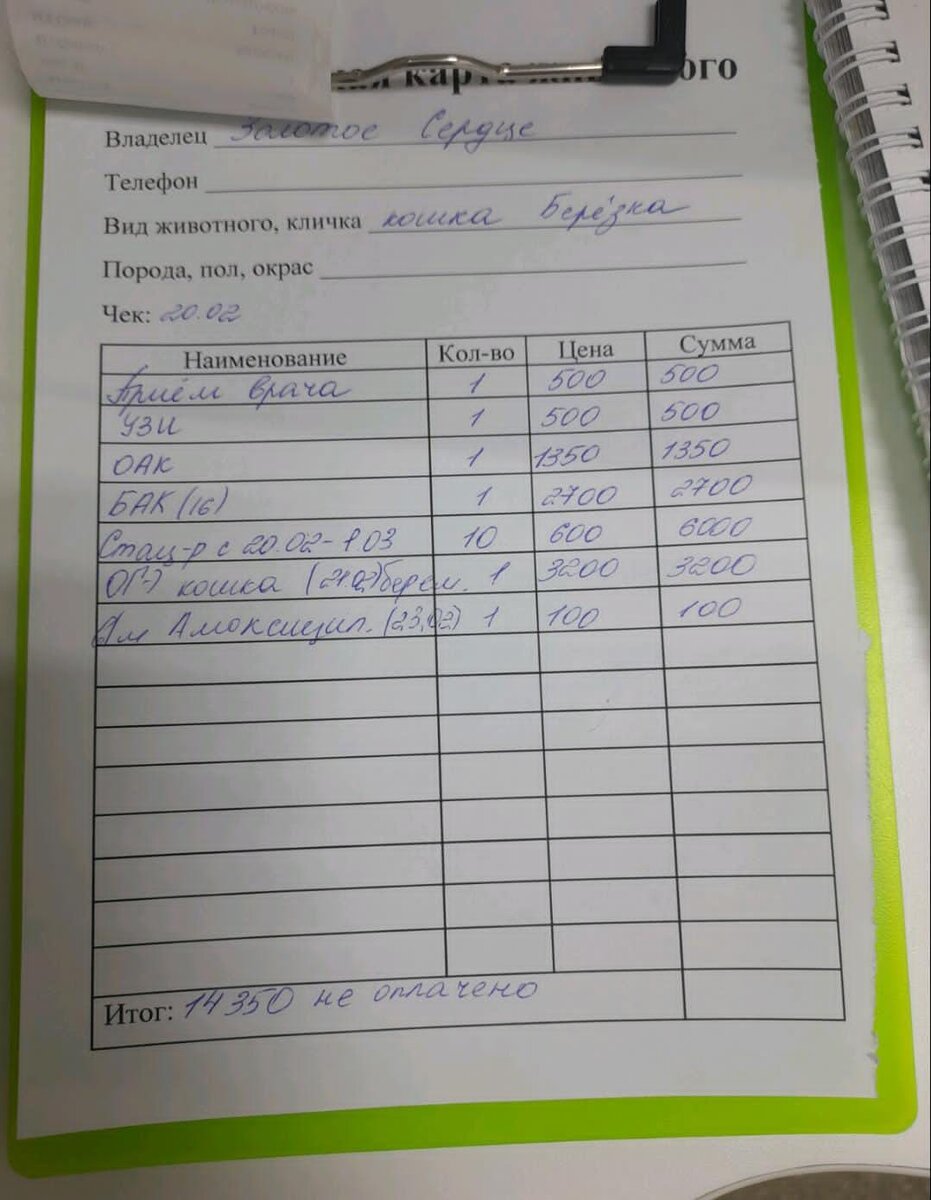 карта
ого
Владелец Золотое Сердце
Телефон
Вид животного, кличка кошка Берёзка
Порода, пол, окрас
Чек: 20.02
Наименование Кол-во Цена Сумма
Приём врача 1 500 500
УЗИ 1 500 500
ОАК 1 1350 1350
БАК (16) 1 2700 2700
Стац-р с 20.02-1.03 10 600 6000
кошка (21.02) берем. 1 3200 3200
Амоксицил. (23.02) 1 100 100
Итог: 14350 не оплачено